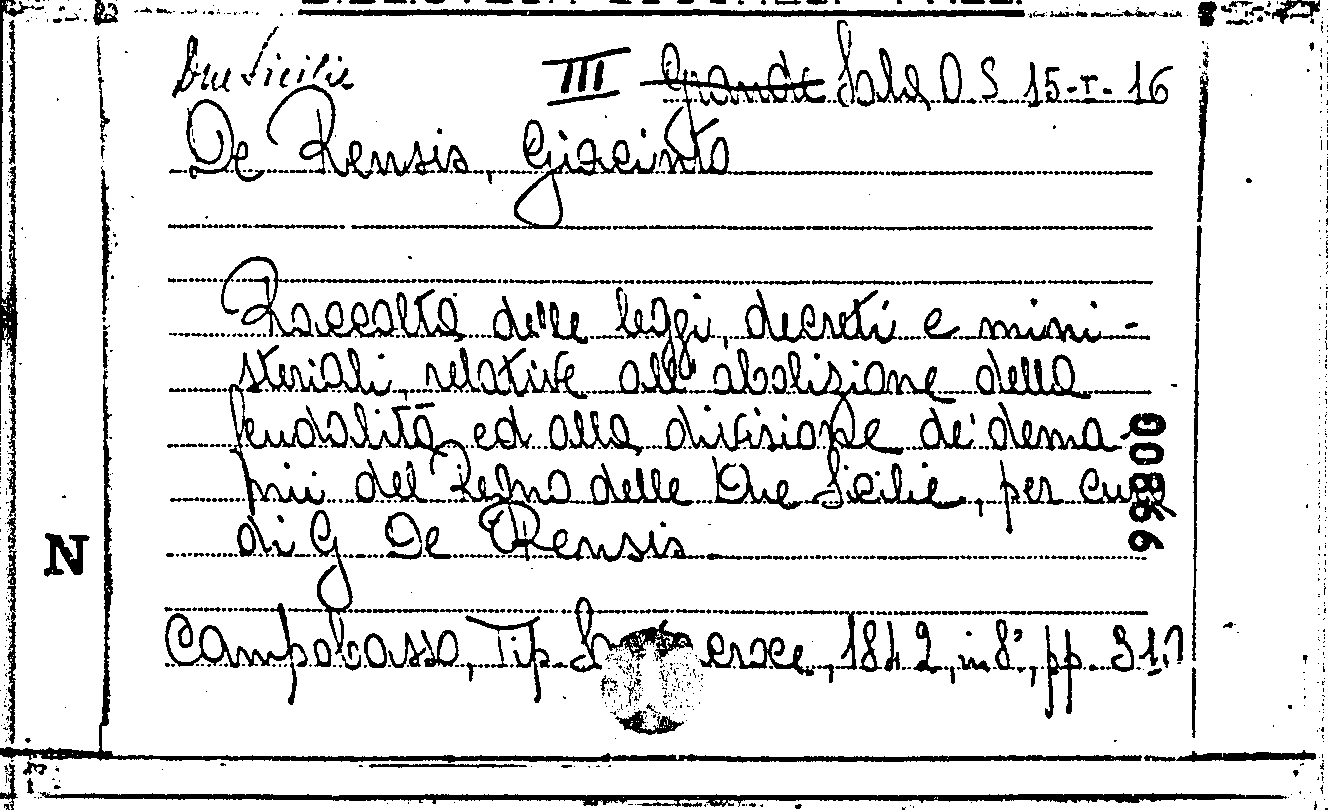 Due Sicilie
III Grande Sala D S 15-I-16
De Rensis, Giacinto
Raccolta delle leggi, decreti e mini-
steriali, relative all'abolizione della
feudalità ed alla divisione de' dema-
nii del Regno delle Due Sicilie, per cura
di G De Rensis
Campobasso, Tip. 1842, in 8°, pp.
99800
N